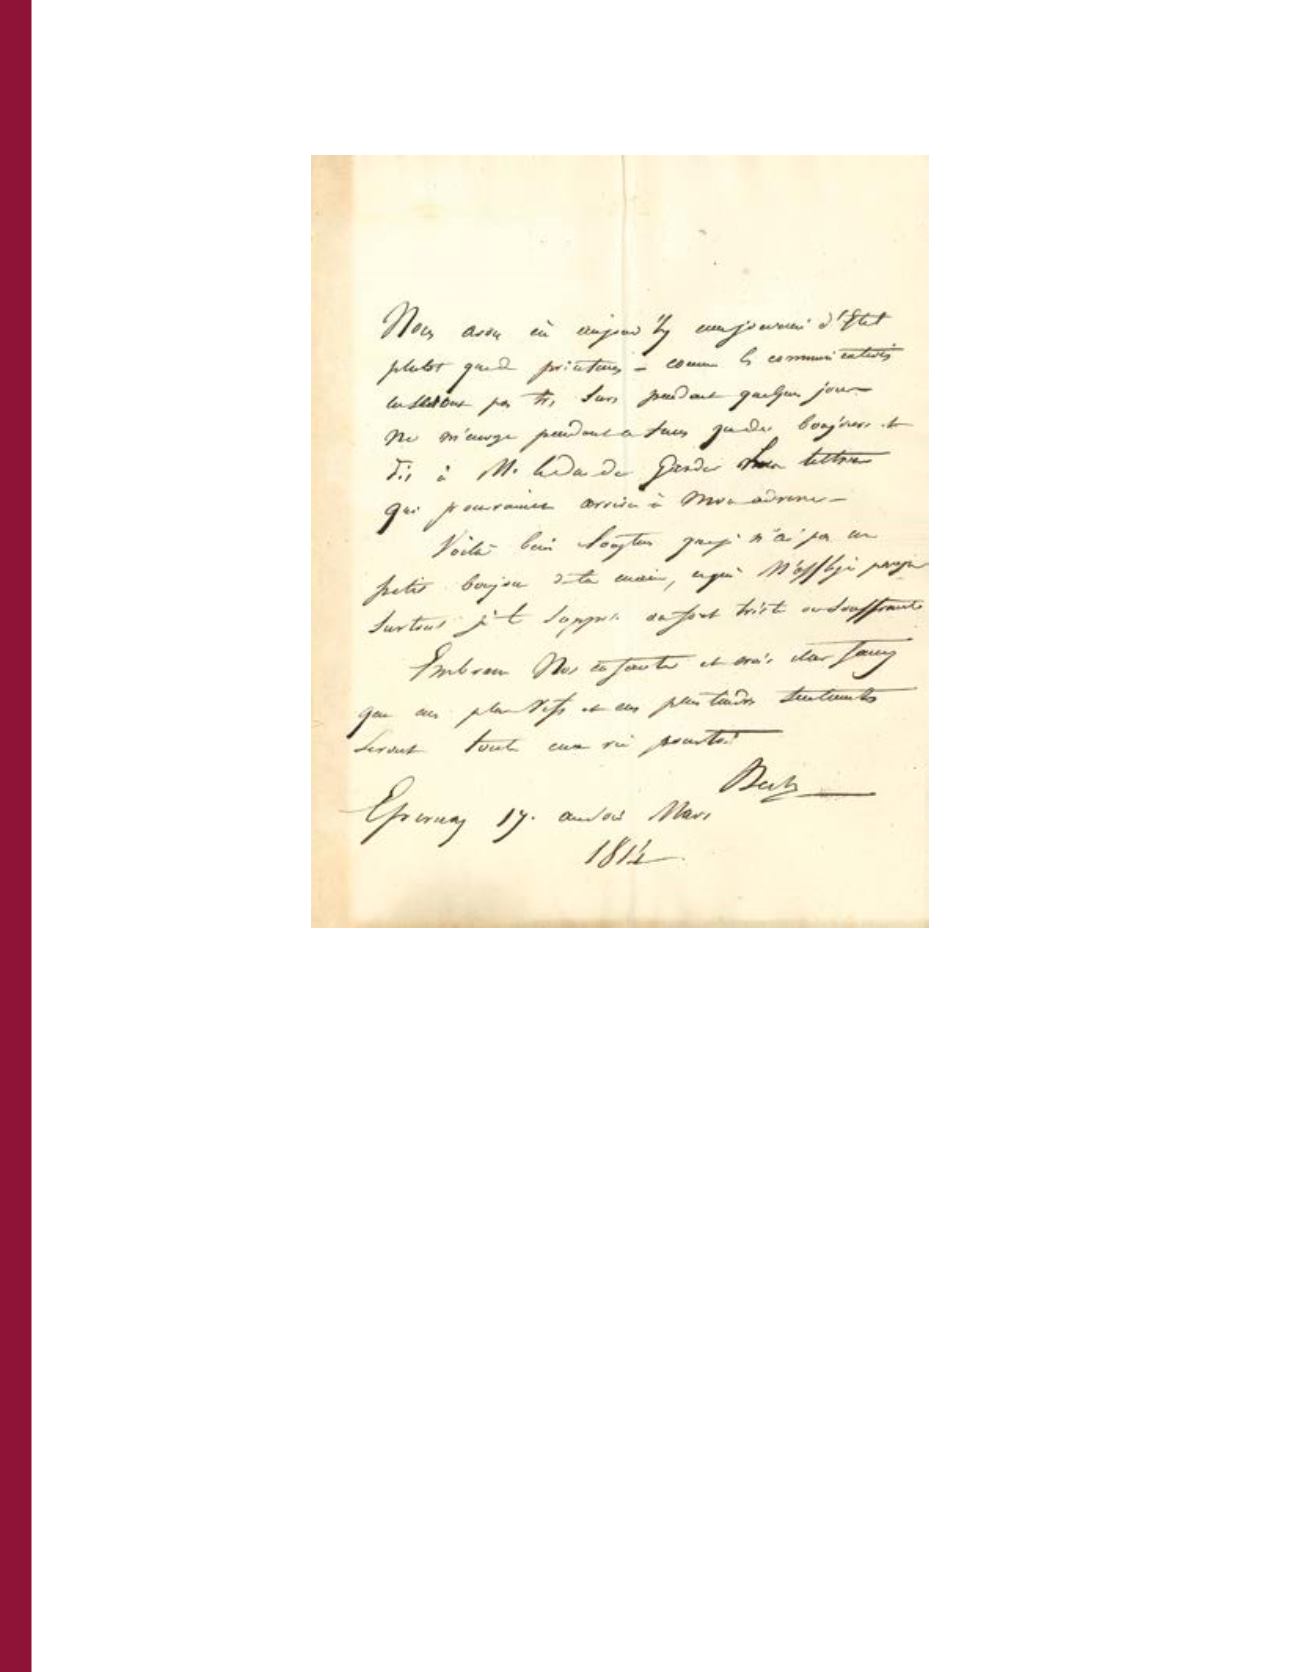 Nous avons eû aujourd'hy une journée d'Etat
plutot que d printems – comme les communications
ne seront pas très sure pendant quelques jours
ne m'envoye pendant ce temps que des bonjours et
dis à M. de garder les lettres
qui pourraient arriver à mon adresse –
Voilà bien longtems que je n'ai pas un
petit bonjour de ta main, ce qui m'afflige parceque
surtout je te suppose ou fort triste ou souffrante
Embrasse nos enfants et crois
que mes plus vifs et mes plus tendres sentiments
seront toute ma vie pour toi
Epernay 17. au soir Mars
1814